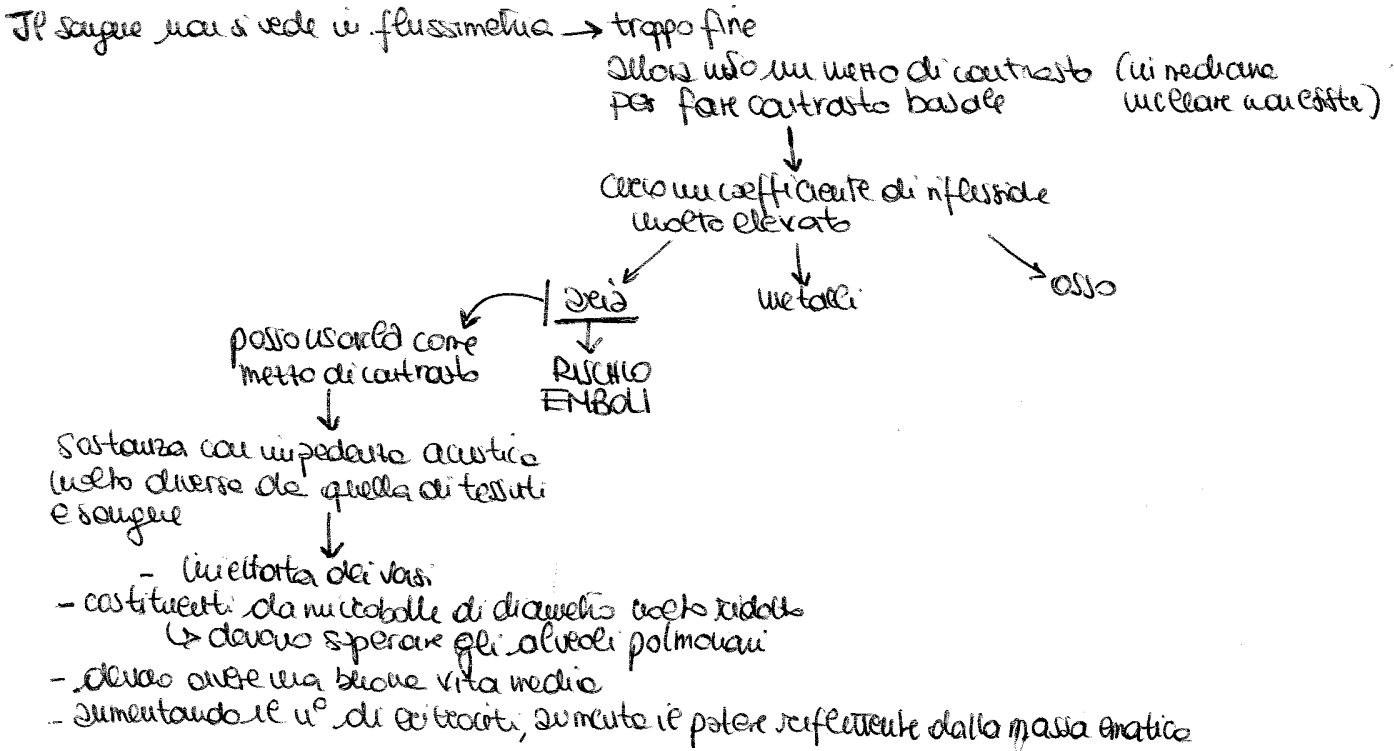 Il sangue non si vede in flussimetria → troppo fine
allora uso un mezzo di contrasto (in medicina
per fare contrasto basale nucleare non esiste)
cerco un coefficiente di riflessione
molto elevato
aria metalli osso
possousarla come
mezzo di contrasto
RISCHIO
EMBOLI
sostanza con impedenza acustica
molto diversa da quella di tessuti
e sangue
- iniettata dei vasi
- costituenti da microbolle di diametro molto ridotto
↳ devono superare gli alveoli polmonari
- devono avere una buona vita media
- aumentando il n° di eritrociti, aumenta il potere riflettente dalla massa ematica